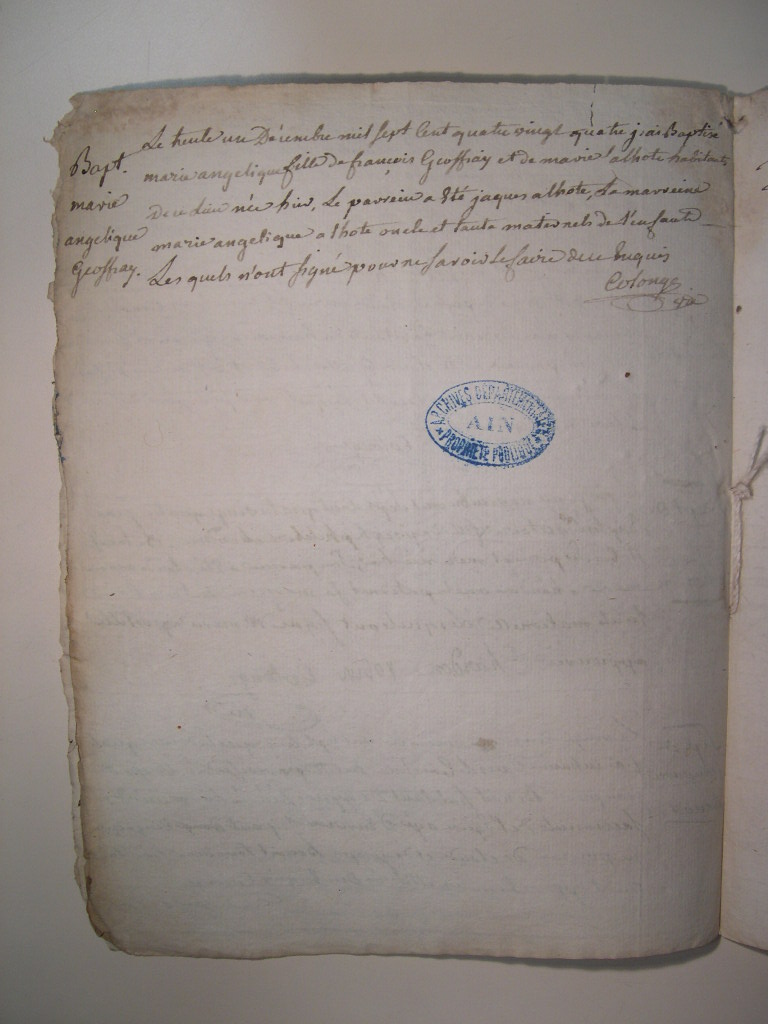 Bapt.
marie
angelique
Geoffray.
Le trente un Décembre mil sept Cent quatre vingt quatre j'ai Baptisé
marie angelique fille de françois Geoffray et de marie l'alhote habitants
De ce lieu née hier, Le parrein a Eté jaques alhote, La marreine
marie angelique alhote oncle et tante maternels de L'enfante
Les quels n'ont signé pour ne savoir Le faire de ce Enquis
Colonge
ARCHIVES DEPARTEMENTALES
AIN
PROPRIÉTÉ PUBLIQUE